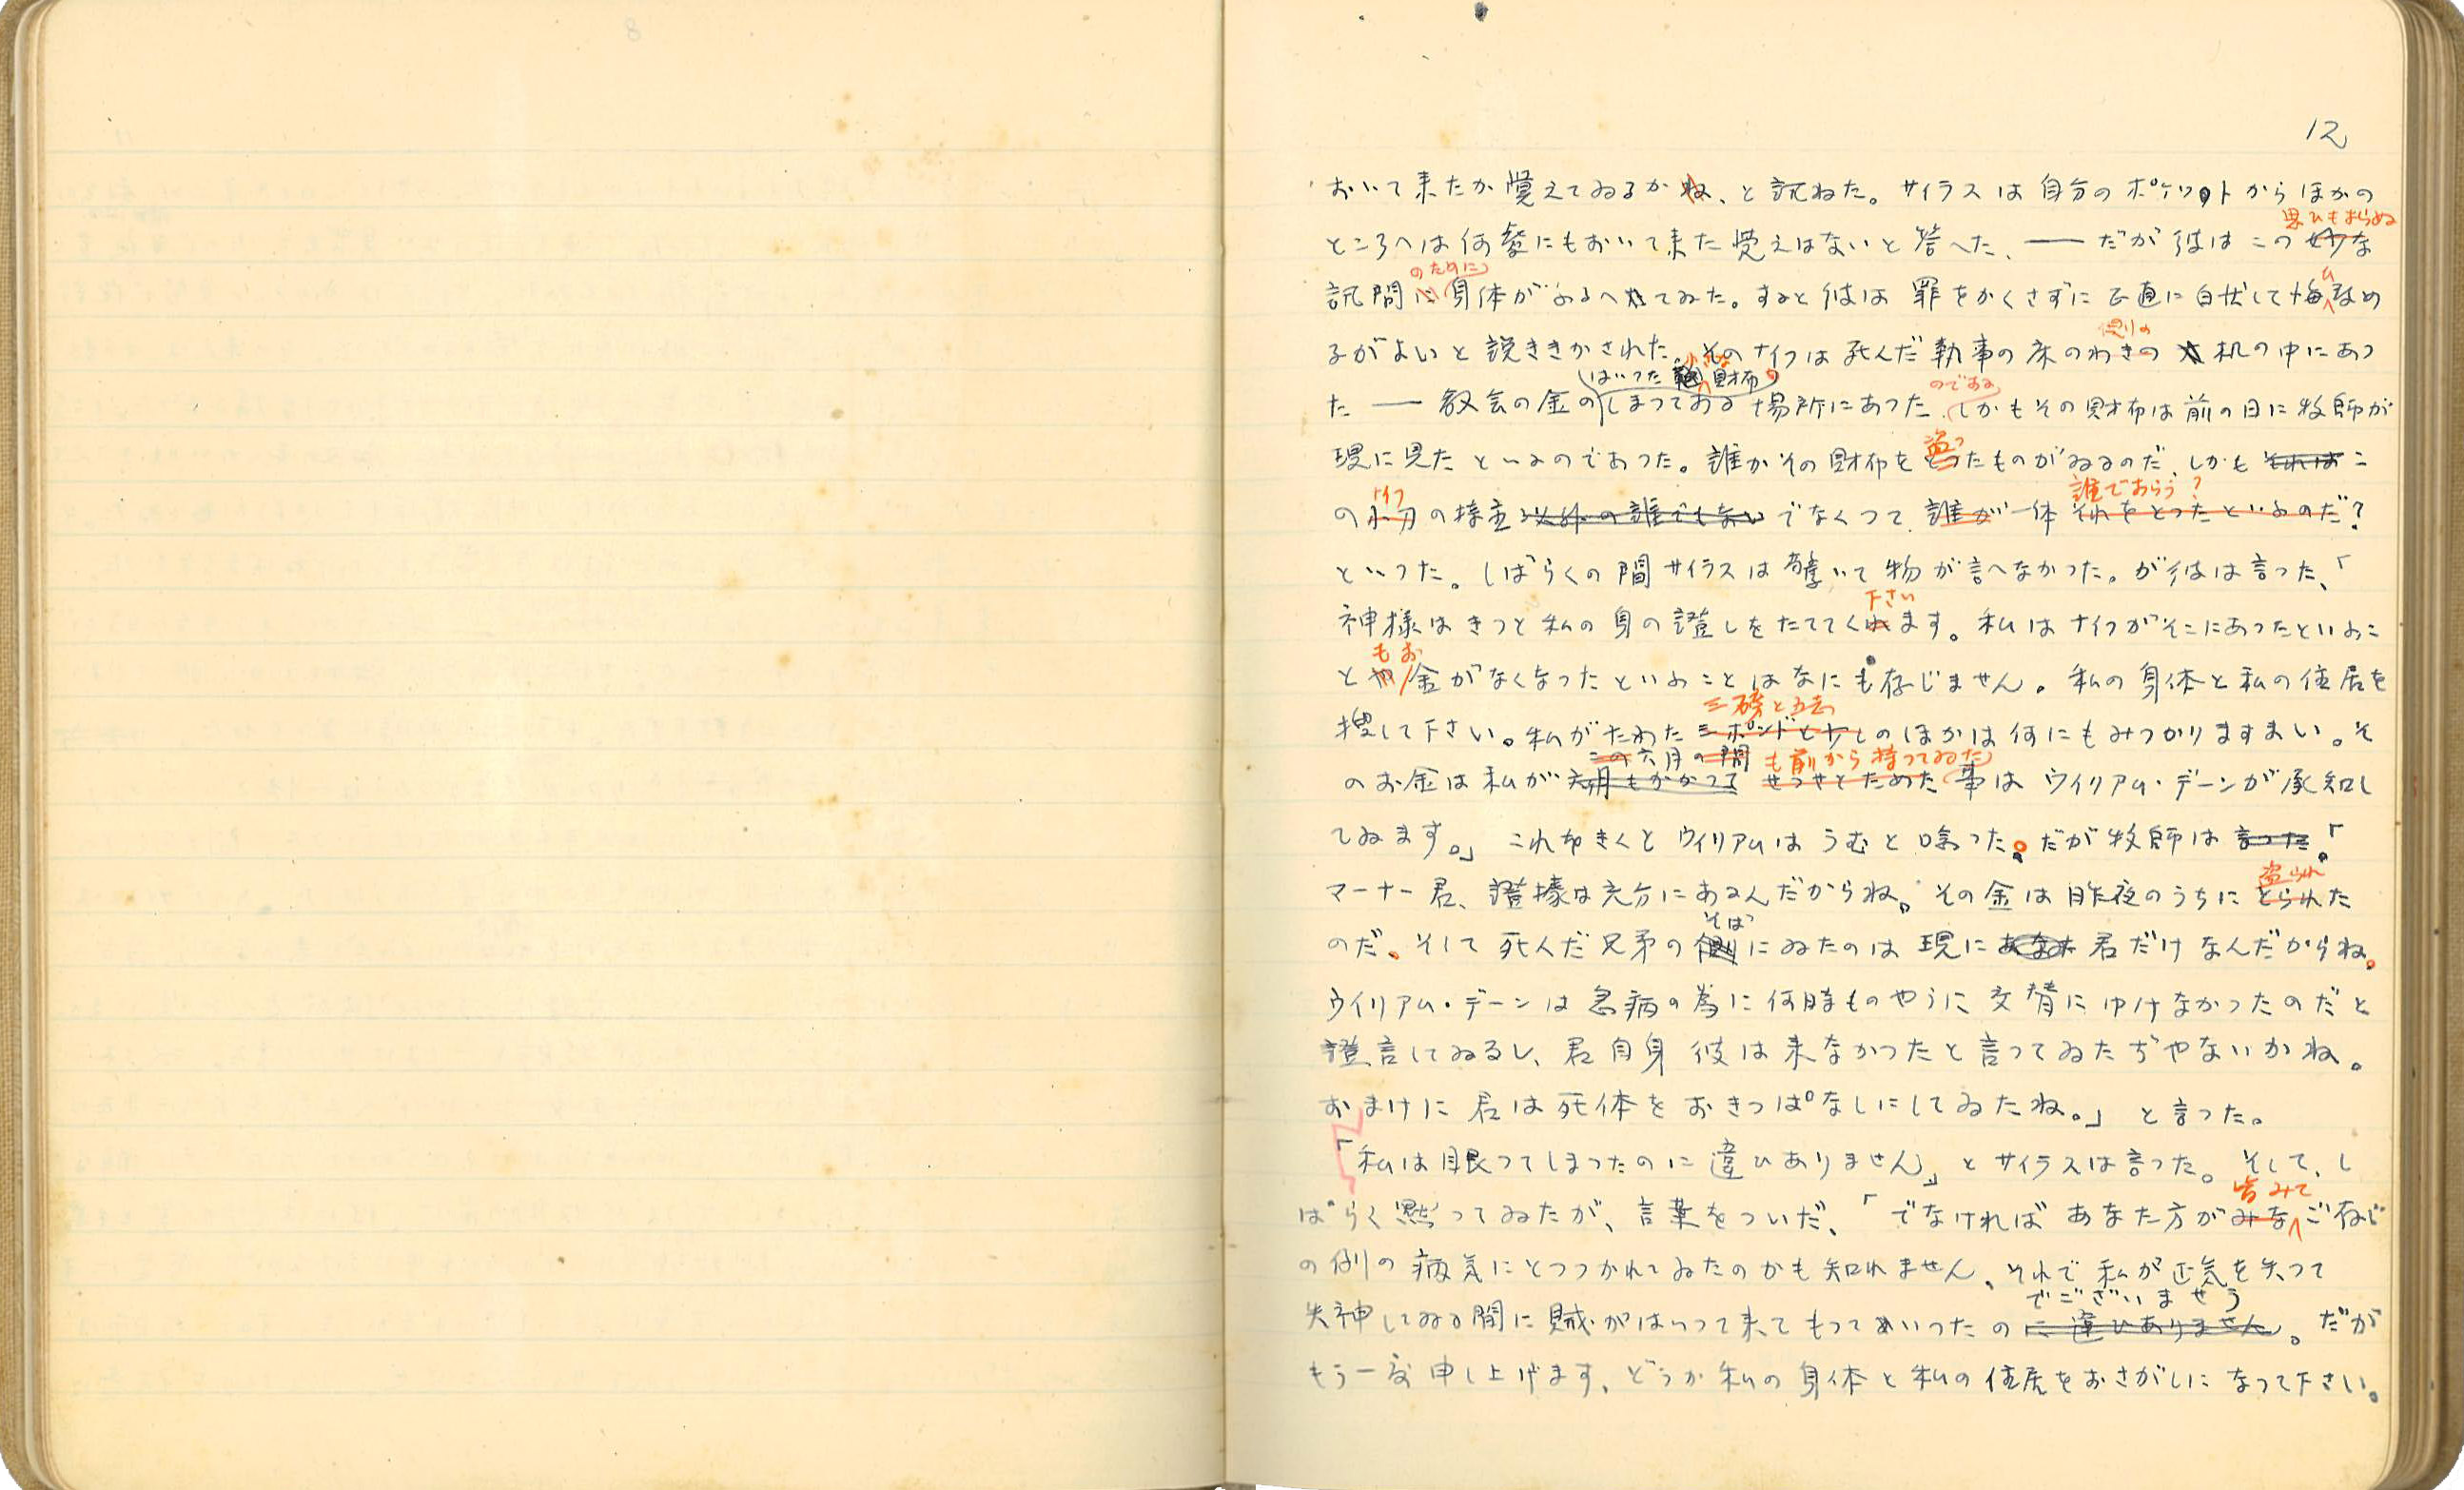 12
おいて来たか覚えてゐるかね、と訊ねた。サイラスは自分のポケットからほかの
思ひもよらぬ
ところへは何處にもおいて来た覚えはないと答へた、――だが彼はこの妙な
のために ひ
訊問に身体がふるへてゐた。すると彼は罪をかくさずに正直に白状して悔改め
るがよいと説ききかされた。そのナイフは死んだ執事の床のわきの机の中にあつ
はいつた 小さな 財布の のである
た――教会の金のしまつてある場所にあつた、しかもその財布は前の日に牧師が
盗つ
現に見たといふのであつた。誰かその財布をとつたものがゐるのだ、しかもそれはこ
ナイフ 誰であらう?
の小刀の持主以外の誰でもないでなくつて、誰が一体それをとつたといふのだ?
といつた。しばらくの間サイラスは驚いて物が言へなかつた。が彼は言つた、「
下さい
神様はきつと私の身の證しをたててくれます。私はナイフがそこにあつたといふこ
もお
とや金がなくなつたといふことはなにも存じません。私の身体と私の住居を
三磅と五志
捜して下さい。私がためた三ポンドと少しのほかは何にもみつかりますまい。そ
この六月の間も前から持つてゐた
のお金は私が六月もかかつてせつせとためた事はウイリアム・デーンが承知し
てゐます。」これをきくとウイリアムはうむと唸つた。だが牧師は言つた。「
盗られ
マーナー君、證據は充分にあるんだからね。その金は昨夜のうちにとられた
そば
のだ、そして死んだ兄弟の側にゐたのは現にあなた君だけなんだからね。
ウイリアム・デーンは急病の為に何時ものやうに交替にゆけなかつたのだと
證言してゐるし、君自身彼は来なかつたと言つてゐたぢやないかね。
おまけに君は死体をおきつぱなしにしてゐたね。」と言つた。
「私は眠つてしまつたのに違ひありません」とサイラスは言つた。そして、し
皆みて
ばらく黙つてゐたが、言葉をついだ、「でなければあなた方がみなご存じ
の例の病気にとつつかれてゐたのかも知れません、それで私が正気を失つて
でございませう
失神してゐる間に賊がはいつて来てもつていつたのに違ひありません。だが
もう一度申し上げます、どうか私の身体と私の住居をおさがしになつて下さい。